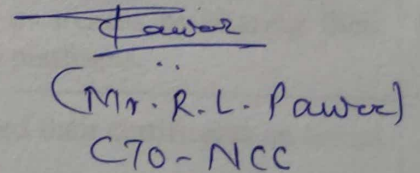 Pawar
(Mr. R. L. Pawar)
CTO - NCC